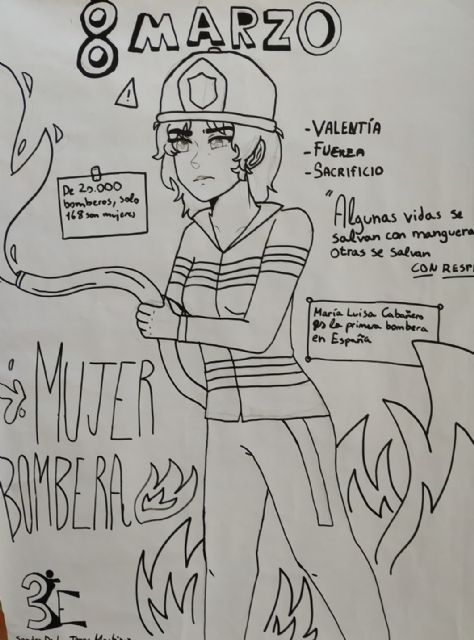 8 MARZO
De 20.000
bomberos, solo
168 son mujeres
-VALENTÍA
-FUERZA
-SACRIFICIO
"Algunas vidas se
salvan con manguera
otras se salvan
CON RESPE
María Luisa Cabañero
es la primera bombera
en España
MUJER
BOMBERA
3E